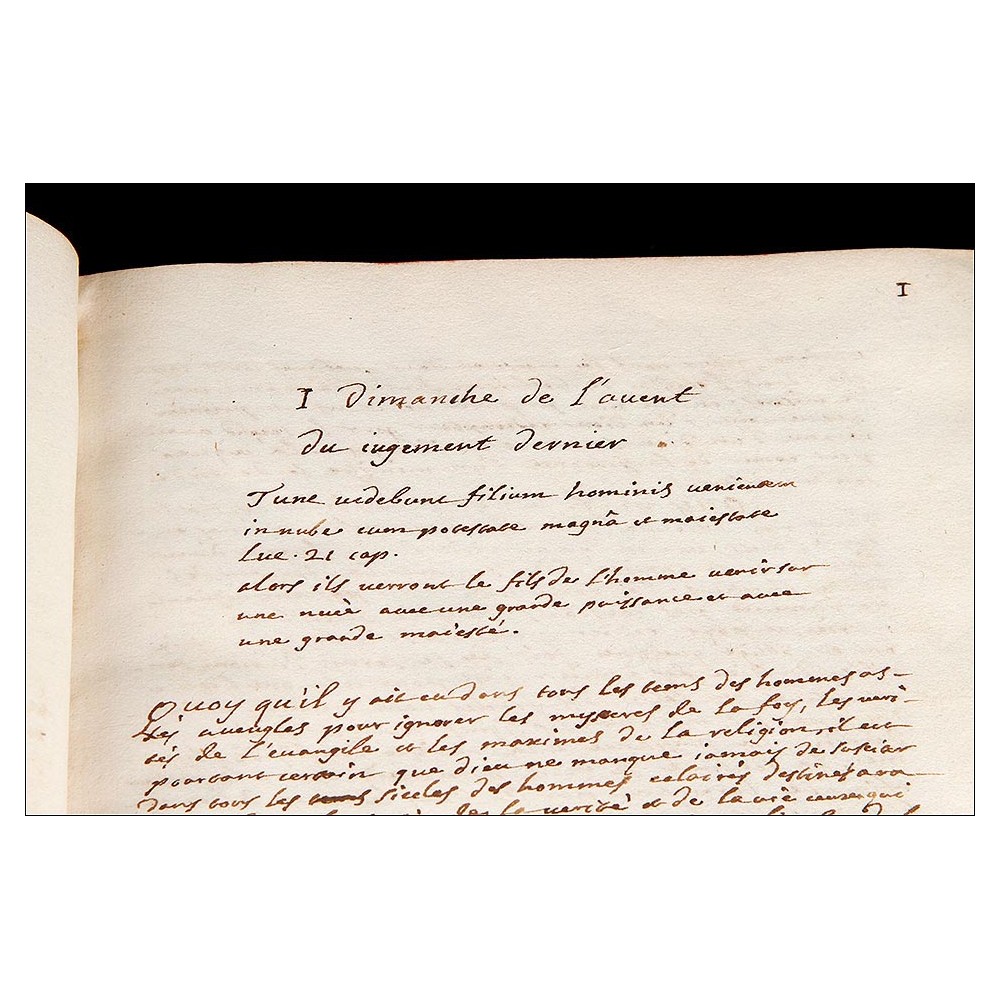 1
I Dimanche de l'avent
Du iugement dernier
Tunc videbunt filium hominis venientem
in nube cum potestate magnâ et maiestate
Luc. 21 cap.
alors ils verront le fils de l'homme venir sur
une nuée avec une grande puissance et avec
une grande maiesté.
Quoy qu'il y ait eu dans tous les tems des hommes as-
sés aveugles pour ignorer les mysteres de la foy, les veri-
tés de l'evangile et les maximes de la religion, il est
pourtant certain que dieu ne manque iamais de susciter
dans tous les siecles des hommes eclairés destinés a ra-
la verité et de la vie ceux qui